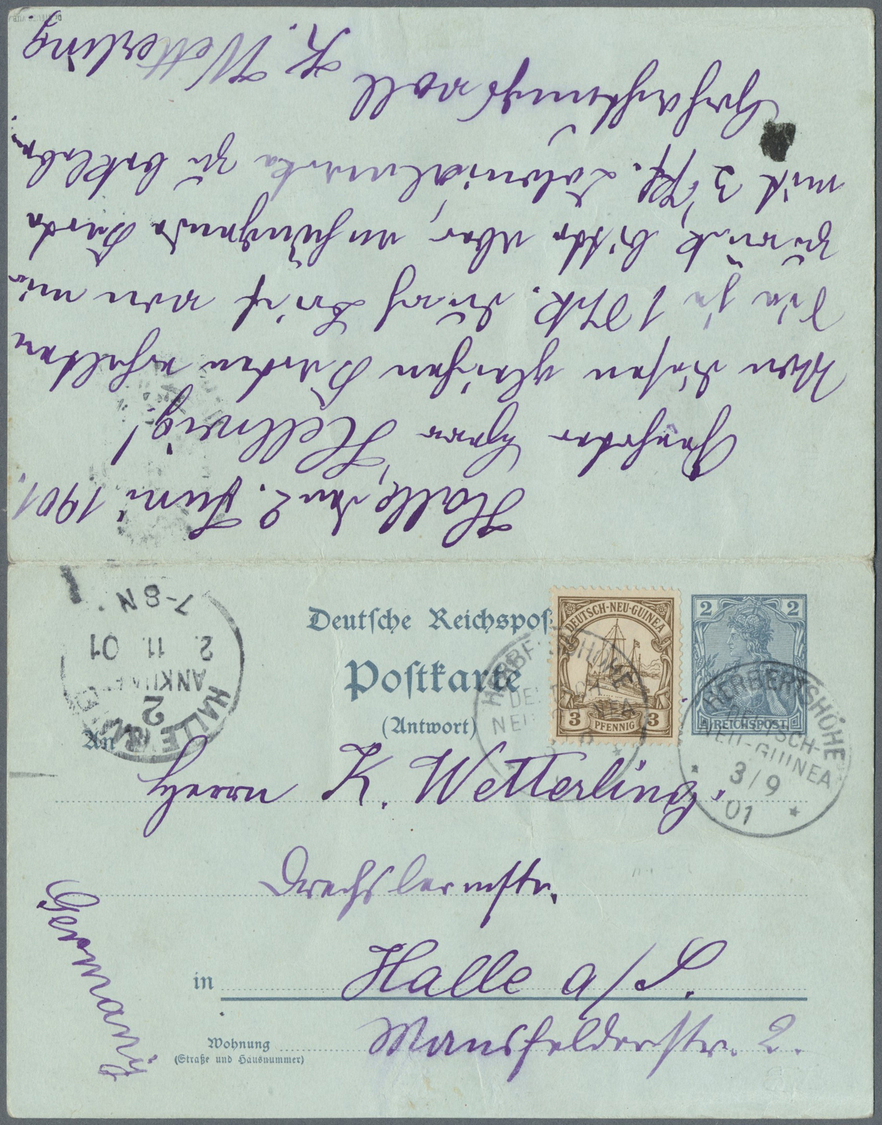 Halle, den 2. Juni 1901.
Geehrter Herr Hellwig!
Von diesen gleichen Karten erhalten
Sie je 1 Mk. durch Brief von mir
zurück, bitte aber, anhängende Karte
mit 3 Pf. Colonialmarke zu bekleben.
Hochachtungsvoll
K. Wetterling
Deutsche Reichspost
Postkarte
(Antwort)
DEUTSCH-NEU-GUINEA
3 PFENNIG 3
2 2
REICHSPOST
HERBERTSHÖHE
DEUTSCH-
NEU-GUINEA
HERBERTSHÖHE
DEUTSCH-
NEU-GUINEA
3/9
01
HALLE
2
ANKUNFT
2. 11. 01
7-8 N.
An
Herrn K. Wetterling,
Drechslermstr.
in Halle a/S.
Wohnung
(Straße und Hausnummer)
Mansfelderstr. 2.
Germany